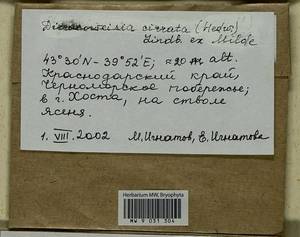 Dicranoweisia cirrata (Hedw.)
Lindb. ex Milde
43°30'N - 39°52'E; ≈20 m alt.
Краснодарский край,
Черноморское побережье;
в г. Хоста, на стволе
ясеня.
1. VIII. 2002 М. Игнатов, Е. Игнатова
Herbarium MW, Bryophyta
MW 9 031 304